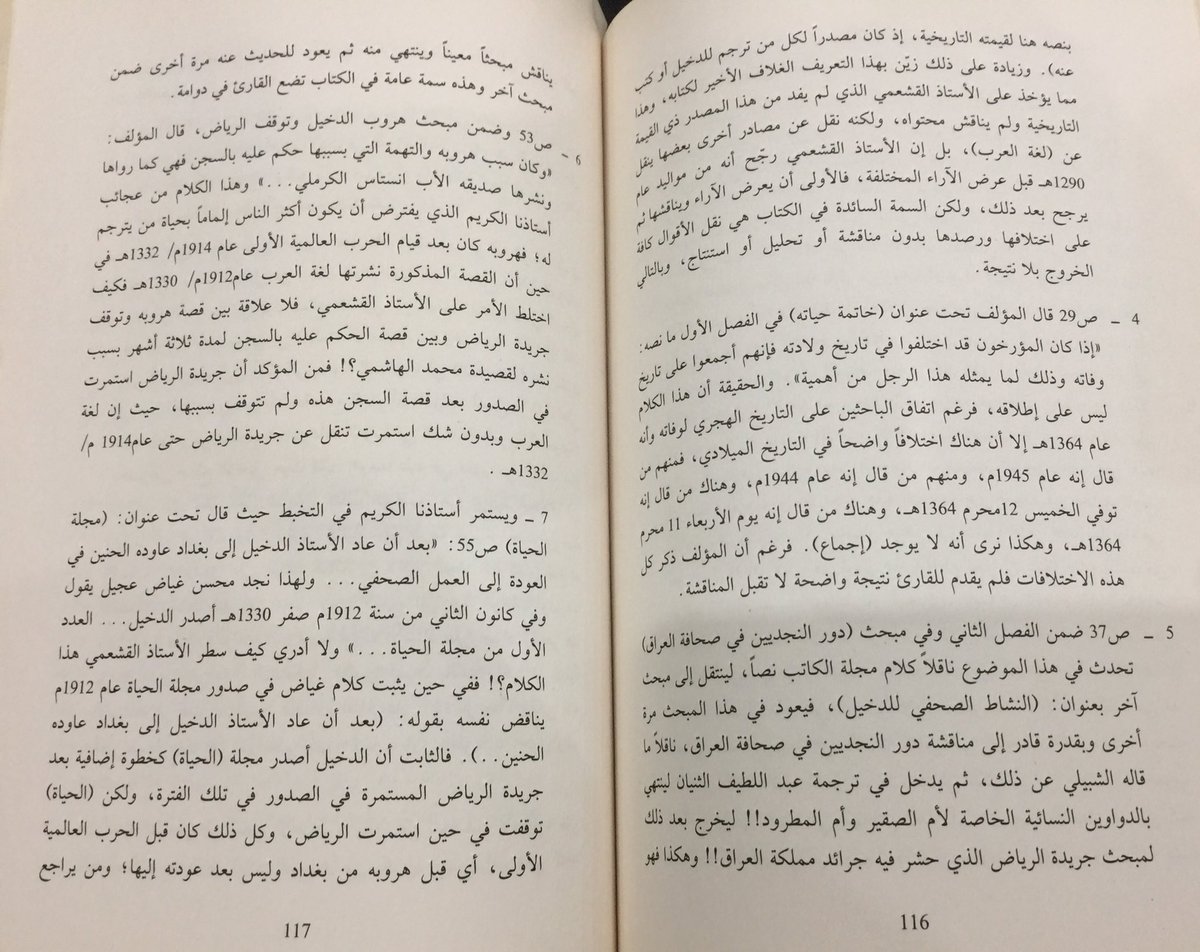 بنصه هنا لقيمته التاريخية، إذ كان مصدراً لكل من ترجم للدخيل أو كتب
عنه). وزيادة على ذلك زيّن بهذا التعريف الغلاف الأخير لكتابه، وهذا
مما يؤخذ على الأستاذ القشعمي الذي لم يفد من هذا المصدر ذي القيمة
التاريخية ولم يناقش محتواه، ولكنه نقل عن مصادر أخرى بعضها ينقل
عن (لغة العرب)، بل إن الأستاذ القشعمي رجّح أنه من مواليد عام
1290هـ قبل عرض الآراء المختلفة، فالأولى أن يعرض الآراء ويناقشها ثم
يرجح بعد ذلك، ولكن السمة السائدة في الكتاب هي نقل الأقوال كافة
على اختلافها ورصدها بدون مناقشة أو تحليل أو استنتاج، وبالتالي
الخروج بلا نتيجة.
4 ـ ص29 قال المؤلف تحت عنوان (خاتمة حياته) في الفصل الأول ما نصه:
«إذا كان المؤرخون قد اختلفوا في تاريخ ولادته فإنهم أجمعوا على تاريخ
وفاته وذلك لما يمثله هذا الرجل من أهمية». والحقيقة أن هذا الكلام
ليس على إطلاقه، فرغم اتفاق الباحثين على التاريخ الهجري لوفاته وأنه
عام 1364هـ إلا أن هناك اختلافاً واضحاً في التاريخ الميلادي، فمنهم من
قال إنه عام 1945م، ومنهم من قال إنه عام 1944م، وهناك من قال إنه
توفي الخميس 12محرم 1364هـ، وهناك من قال إنه يوم الأربعاء 11 محرم
1364هـ، وهكذا نرى أنه لا يوجد (إجماع). فرغم أن المؤلف ذكر كل
هذه الاختلافات فلم يقدم للقارئ نتيجة واضحة لا تقبل المناقشة.
5 ـ ص37 ضمن الفصل الثاني وفي مبحث (دور النجديين في صحافة العراق)
تحدث في هذا الموضوع ناقلاً كلام مجلة الكاتب نصاً، لينتقل إلى مبحث
آخر بعنوان: (النشاط الصحفي للدخيل)، فيعود في هذا المبحث مرة
أخرى وبقدرة قادر إلى مناقشة دور النجديين في صحافة العراق، ناقلاً ما
قاله الشبيلي عن ذلك، ثم يدخل في ترجمة عبد اللطيف الثنيان لينتهي
بالدواوين النسائية الخاصة لأم الصقير وأم المطرود!! ليخرج بعد ذلك
لمبحث جريدة الرياض الذي حشر فيه جرائد مملكة العراق!! وهكذا فهو
116
يناقش مبحثاً معيناً وينتهي منه ثم يعود للحديث عنه مرة أخرى ضمن
مبحث آخر وهذه سمة عامة في الكتاب تضع القارئ في دوامة.
6 ـ ص53 وضمن مبحث هروب الدخيل وتوقف الرياض، قال المؤلف:
«وكان سبب هروبه والتهمة التي بسببها حكم عليه بالسجن فهي كما رواها
ونشرها صديقه الأب انستاس الكرملي...» وهذا الكلام من عجائب
أستاذنا الكريم الذي يفترض أن يكون أكثر الناس إلماماً بحياة من يترجم
له؛ فهروبه كان بعد قيام الحرب العالمية الأولى عام 1914م/ 1332هـ في
حين أن القصة المذكورة نشرتها لغة العرب عام1912م/ 1330هـ فكيف
اختلط الأمر على الأستاذ القشعمي، فلا علاقة بين قصة هروبه وتوقف
جريدة الرياض وبين قصة الحكم عليه بالسجن لمدة ثلاثة أشهر بسبب
نشره لقصيدة محمد الهاشمي؟! فمن المؤكد أن جريدة الرياض استمرت
في الصدور بعد قصة السجن هذه ولم تتوقف بسببها، حيث إن لغة
العرب وبدون شك استمرت تنقل عن جريدة الرياض حتى عام1914 م/
1332هـ .
7 ـ ويستمر أستاذنا الكريم في التخبط حيث قال تحت عنوان: (مجلة
الحياة) ص55: «بعد أن عاد الأستاذ الدخيل إلى بغداد عاوده الحنين في
العودة إلى العمل الصحفي... ولهذا نجد محسن غياض عجيل يقول
وفي كانون الثاني من سنة 1912م صفر 1330هـ أصدر الدخيل... العدد
الأول من مجلة الحياة...» ولا أدري كيف سطر الأستاذ القشعمي هذا
الكلام؟! ففي حين يثبت كلام غياض في صدور مجلة الحياة عام 1912م
يناقض نفسه بقوله: (بعد أن عاد الأستاذ الدخيل إلى بغداد عاوده
الحنين...). فالثابت أن الدخيل أصدر مجلة (الحياة) كخطوة إضافية بعد
جريدة الرياض المستمرة في الصدور في تلك الفترة، ولكن (الحياة)
توقفت في حين استمرت الرياض، وكل ذلك كان قبل الحرب العالمية
الأولى، أي قبل هروبه من بغداد وليس بعد عودته إليها؛ ومن يراجع
117